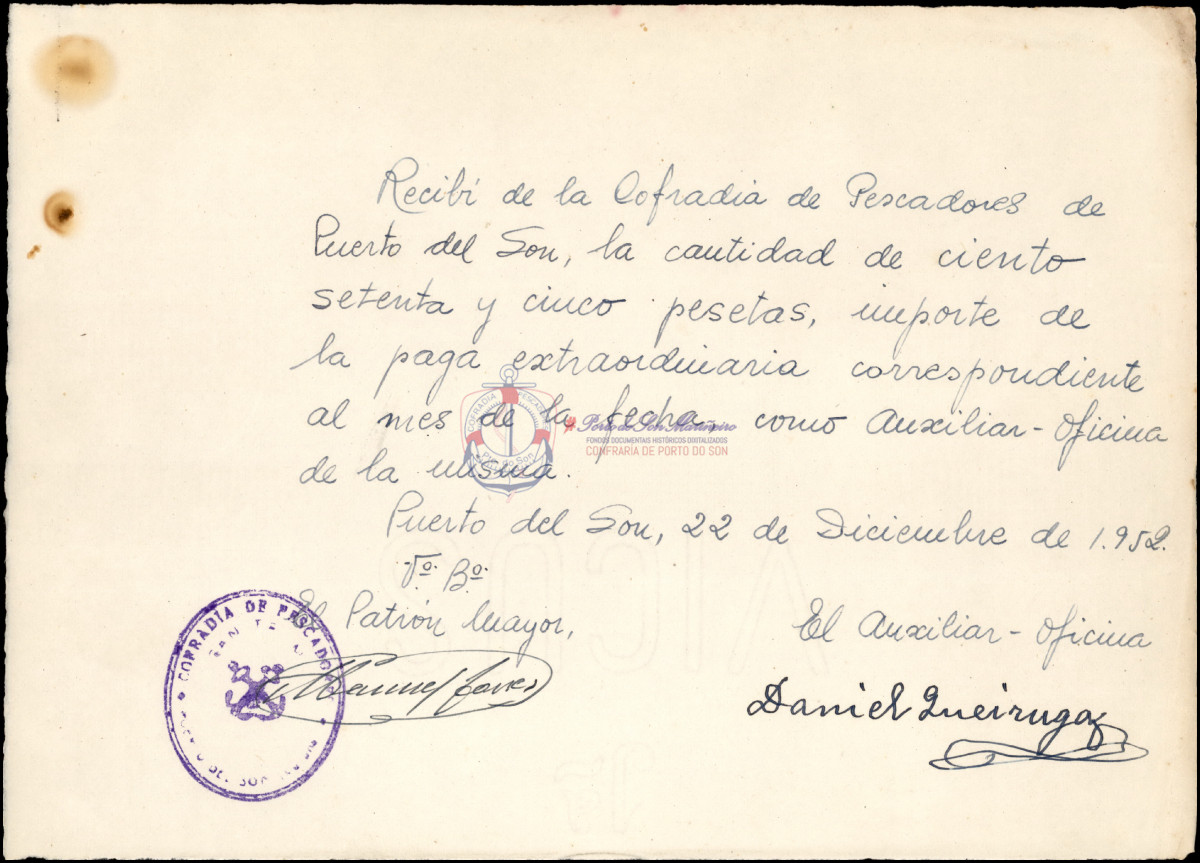 Recibí de la Cofradia de Pescadores de
Puerto del Son, la cantidad de ciento
setenta y cinco pesetas, importe de
la paga extraordinaria correspondiente
al mes de la fecha, como Auxiliar-Oficina
de la misma.
Puerto del Son, 22 de Diciembre de 1.952.
Vº. Bº.
El Patrón Mayor,
El Auxiliar-Oficina
Daniel Queiruga
COFRADIA DE PESCADORES
SAN
COFRADIA PESCADORES
Pto. do Son
# Porto do Son Mariñeiro
FONDOS DOCUMENTAIS HISTÓRICOS DIXITALIZADOS
CONFRARÍA DE PORTO DO SON